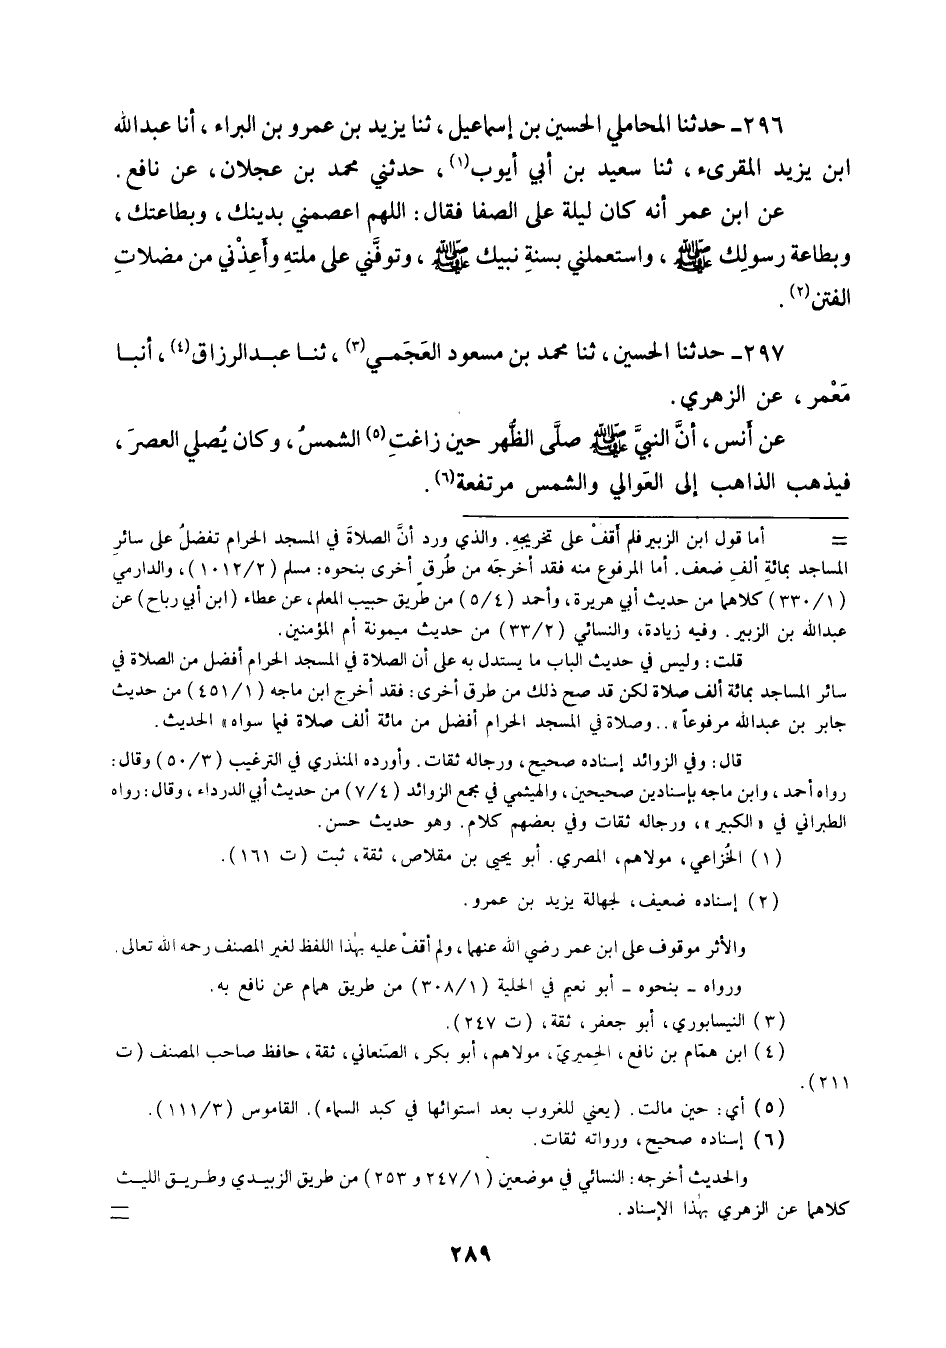 ٢٩٦ـ حدثنا المحاملي الحسين بن إسماعيل، ثنا يزيد بن عمرو بن البراء، أنا عبدالله
ابن يزيد المقرىء، ثنا سعيد بن أبي أيوب(١)، حدثني محمد بن عجلان، عن نافع.
عن ابن عمر أنه كان ليلة على الصفا فقال: اللهم اعصمني بدينك، وبطاعتك،
وبطاعة رسولِك ﷺ، واستعملني بسنةِ نبيك ﷺ، وتوفَّني على ملتهِ وأَعِذْني من مضلاتِ
الفتن(٢).
٢٩٧ـ حدثنا الحسين، ثنا محمد بن مسعود العَجَمي(٣)، ثنا عبدالرزاق(٤)، أنبا
مَعْمر، عن الزهري.
عن أَنس، أنَّ النبيَّ ﷺ صلَّى الظُهر حين زاغتِ(٥) الشمسُ، وكان يُصلي العصرَ،
فيذهب الذاهب إلى العَوالي والشمس مرتفعة(٦).
= أما قول ابن الزبير فلم أَقفْ على تخريجهِ. والذي ورد أنَّ الصلاةَ في المسجد الحرام تفضلُ على سائرِ
المساجد بمائةِ ألفِ ضعف. أما المرفوع منه فقد أخرجَه من طُرق أخرى بنحوه: مسلم (١٠١٢/٢)، والدارمي
(٣٣٠/١) كلاهما من حديث أبي هريرة، وأحمد (٥/٤) من طريق حبيب المعلم، عن عطاء (ابن أبي رباح) عن
عبدالله بن الزبير. وفيه زيادة، والنسائي (٣٣/٢) من حديث ميمونة أم المؤمنين.
قلت: وليس في حديث الباب ما يستدل به على أن الصلاة في المسجد الحرام أفضل من الصلاة في
سائر المساجد بمائة ألف صلاة لكن قد صح ذلك من طرق أخرى: فقد أخرج ابن ماجه (٤٥١/١) من حديث
جابر بن عبدالله مرفوعاً «.. وصلاة في المسجد الحرام أفضل من مائة ألف صلاة فيما سواه» الحديث.
قال: وفي الزوائد إسناده صحيح، ورجاله ثقات. وأورده المنذري في الترغيب (٥٠/٣) وقال:
رواه أحمد، وابن ماجه بإسنادين صحيحين، والهيثمي في مجمع الزوائد (٧/٤) من حديث أبي الدرداء، وقال: رواه
الطبراني في «الكبير»، ورجاله ثقات وفي بعضهم كلام. وهو حديث حسن.
(١) الخُزاعي، مولاهم، المصري. أبو يحيى بن مقلاص، ثقة، ثبت (ت ١٦١).
(٢) إسناده ضعيف، لجهالة يزيد بن عمرو.
والأثر موقوف على ابن عمر رضي الله عنهما، ولم أقفْ عليه بهذا اللفظ لغير المصنف رحمه الله تعالى.
ورواه ـ بنحوه ـ أبو نعيم في الحلية (٣٠٨/١) من طريق همام عن نافع به.
(٣) النيسابوري، أبو جعفر، ثقة، (ت ٢٤٧).
(٤) ابن همّام بن نافع، الحِميريّ، مولاهم، أبو بكر، الصَنعاني، ثقة، حافظ صاحب المصنف (ت
٢١١).
(٥) أي: حين مالت. (يعني للغروب بعد استوائها في كبد السماء). القاموس (١١١/٣).
(٦) إسناده صحيح، ورواته ثقات.
والحديث أخرجه: النسائي في موضعين (٢٤٧/١ و ٢٥٣) من طريق الزبيدي وطريق الليث
كلاهما عن الزهري بهذا الإسناد. =
٢٨٩